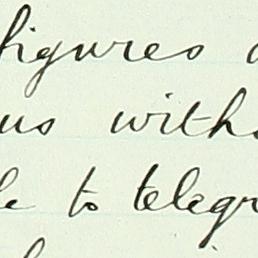 figures
us with
to telegr